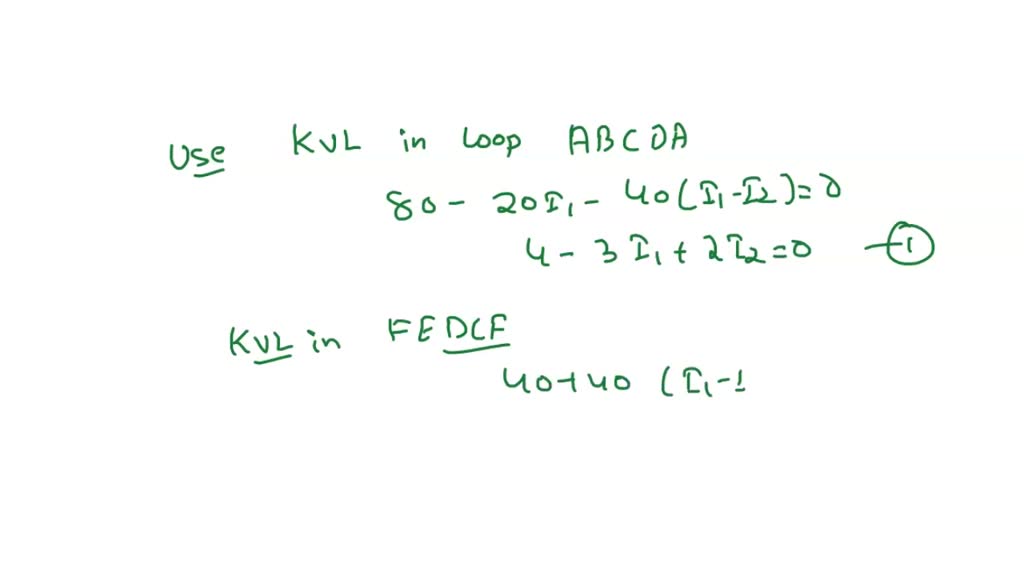 Use KVL in Loop ABCDA
80 - 20I₁ - 40(I₁-I₂)=0
4 - 3I₁ + 2I₂=0 —①
KVL in FEDCF
40+40 (I₁-1